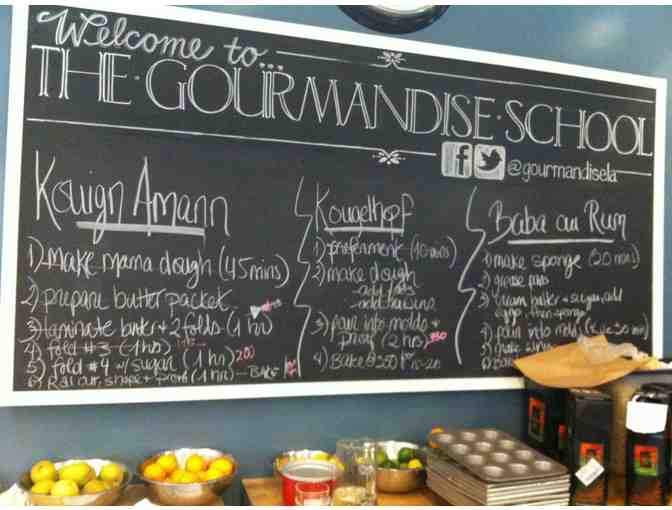 Welcome to...
THE·GOURMANDISE·SCHOOL
f
@gourmandisela
Kouign Amann
1) make mama dough (45 mins)
2) prepare butter packet
3) laminate butter + 2 folds (1 hr)
4) fold #3 (1 hrs)
5) fold #4 w/ sugar (1 hr) 200
6) Roll out, shape + proof (1 hr) — BAKE
Kougelhopf
1) preferment (10 mins)
2) make dough
3) pour into molds +
proof (2 hrs) 350
4) Bake @ 350
Baba au Rum
1) make sponge (20 mins)
2) grease
3) cream butter + sugar, add
eggs, then sponge
4) pour into molds
5) make
6)